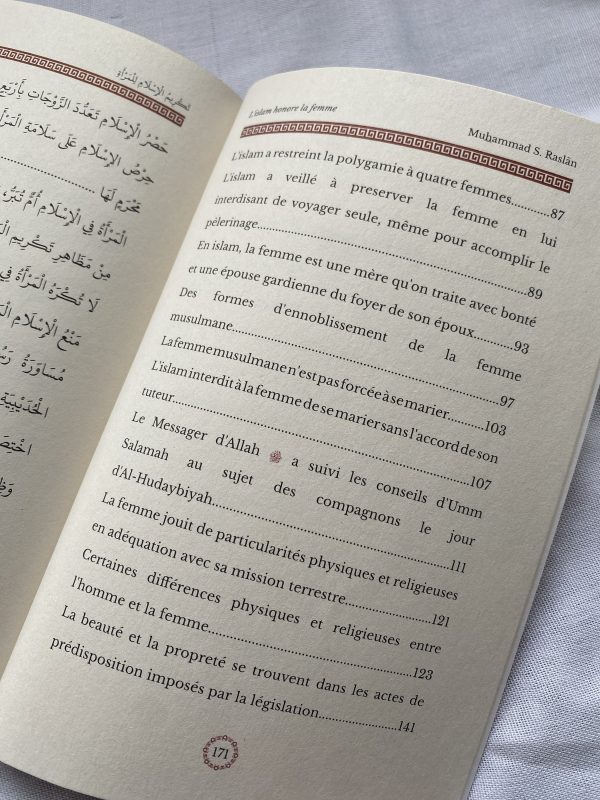 تَكْرِيمُ الْإِسْلَامِ لِلْمَرْأَةِ
حَصْرُ الْإِسْلَامِ تَعَدُّدَ الزَّوْجَاتِ بِأَرْبَعٍ
حِرْصُ الْإِسْلَامِ عَلَى سَلَامَةِ الْمَرْأَةِ
مَحْرَمٍ لَهَا ..........
الْمَرْأَةُ فِي الْإِسْلَامِ أُمٌّ تُبَرُّ،
مِنْ مَظَاهِرِ تَكْرِيمِ
لَا تُكْرَهُ الْمَرْأَةُ فِي
مَنْعُ الْإِسْلَامِ
مُشَاوَرَةُ
الْحُدَيْبِيَةِ
L'islam honore la femme
Muhammad S. Raslân
L'islam a restreint la polygamie à quatre femmes...........87
L'islam a veillé à préserver la femme en lui
interdisant de voyager seule, même pour accomplir le
pélerinage..........89
En islam, la femme est une mère qu'on traite avec bonté
et une épouse gardienne du foyer de son époux..........93
Des formes d'ennoblissement de la femme
musulmane..........97
La femme musulmane n'est pas forcée à se marier..........103
L'islam interdit à la femme de se marier sans l'accord de son
tuteur..........107
Le Messager d'Allah ﷺ a suivi les conseils d'Umm
Salamah au sujet des compagnons le jour
d'Al-Hudaybiyah..........111
La femme jouit de particularités physiques et religieuses
en adéquation avec sa mission terrestre..........121
Certaines différences physiques et religieuses entre
l'homme et la femme..........123
La beauté et la propreté se trouvent dans les actes de
prédisposition imposés par la législation..........141
171